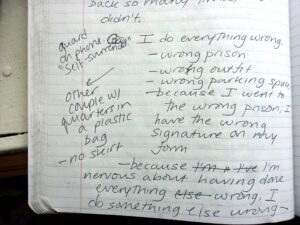 back so many times
didn't.
guard
on phone
"self-surrender"
other
couple w/
quarters in
a plastic
bag
- no skirt
I do everything wrong.
- wrong prison
- wrong outfit
- wrong parking space
- because I went to
the wrong prison, I
have the wrong
signature on my
form
- because I'm a I've I'm
nervous about having done
everything else wrong, I
do something else wrong -